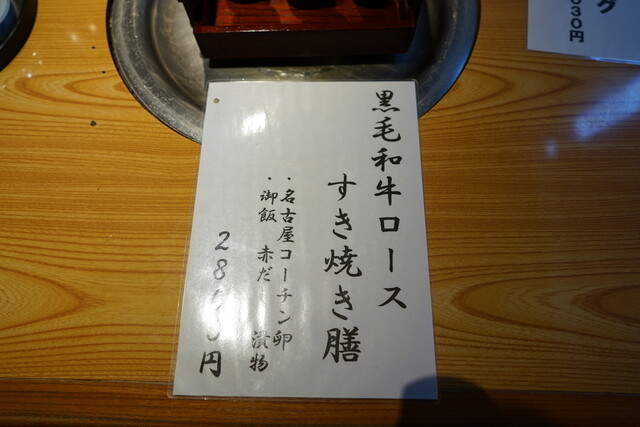 黒毛和牛ロース
すき焼き膳
・名古屋コーチン卵
・御飯 赤だし 漬物
円
030円
グ